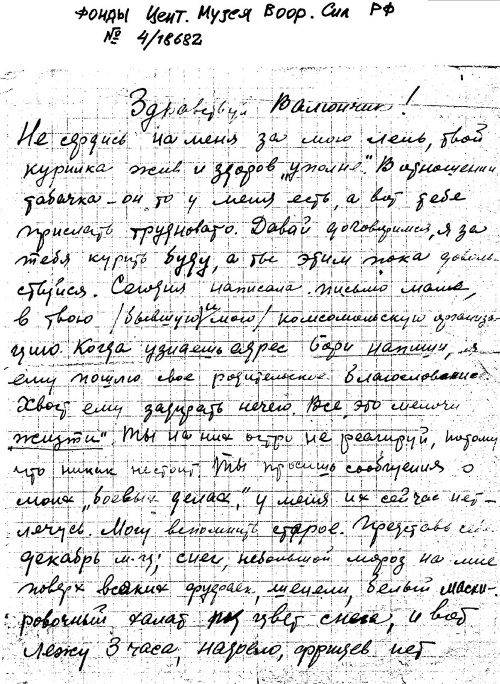 ФОНДЫ Цент. Музея Воор. Сил РФ
№ 4/18682
Здравствуй Валюнчик!
Не сердись на меня за мою лень, твой
курилка жив и здоров „уполне". В отношении
табачка – он то у меня есть, а вот тебе
прислать трудновато. Давай договоримся, я за
тебя курить буду, а ты этим пока доволь-
ствуйся. Сегодня написала письмо маме,
в твою /бывшую и мою/ комсомольскую организа-
цию. Когда узнаешь адрес Бори напиши, я
ему пошлю свое родительское благословение.
Хвост ему задирать нечего. Все это мелочи
жизти" Ты на них остро не реагируй, потому
что никак не стоит. Ты просишь сообщения о
моих „боевых делах," у меня их сейчас нет –
лечусь. Могу вспомнить старое. Представь себе
декабрь м-ц; снег, небольшой мороз на мне
поверх всяких фуфаек, шинели, белый маски-
ровочный халат под цвет снега, и вот
лежу 3 часа, надоело, фрицев нет